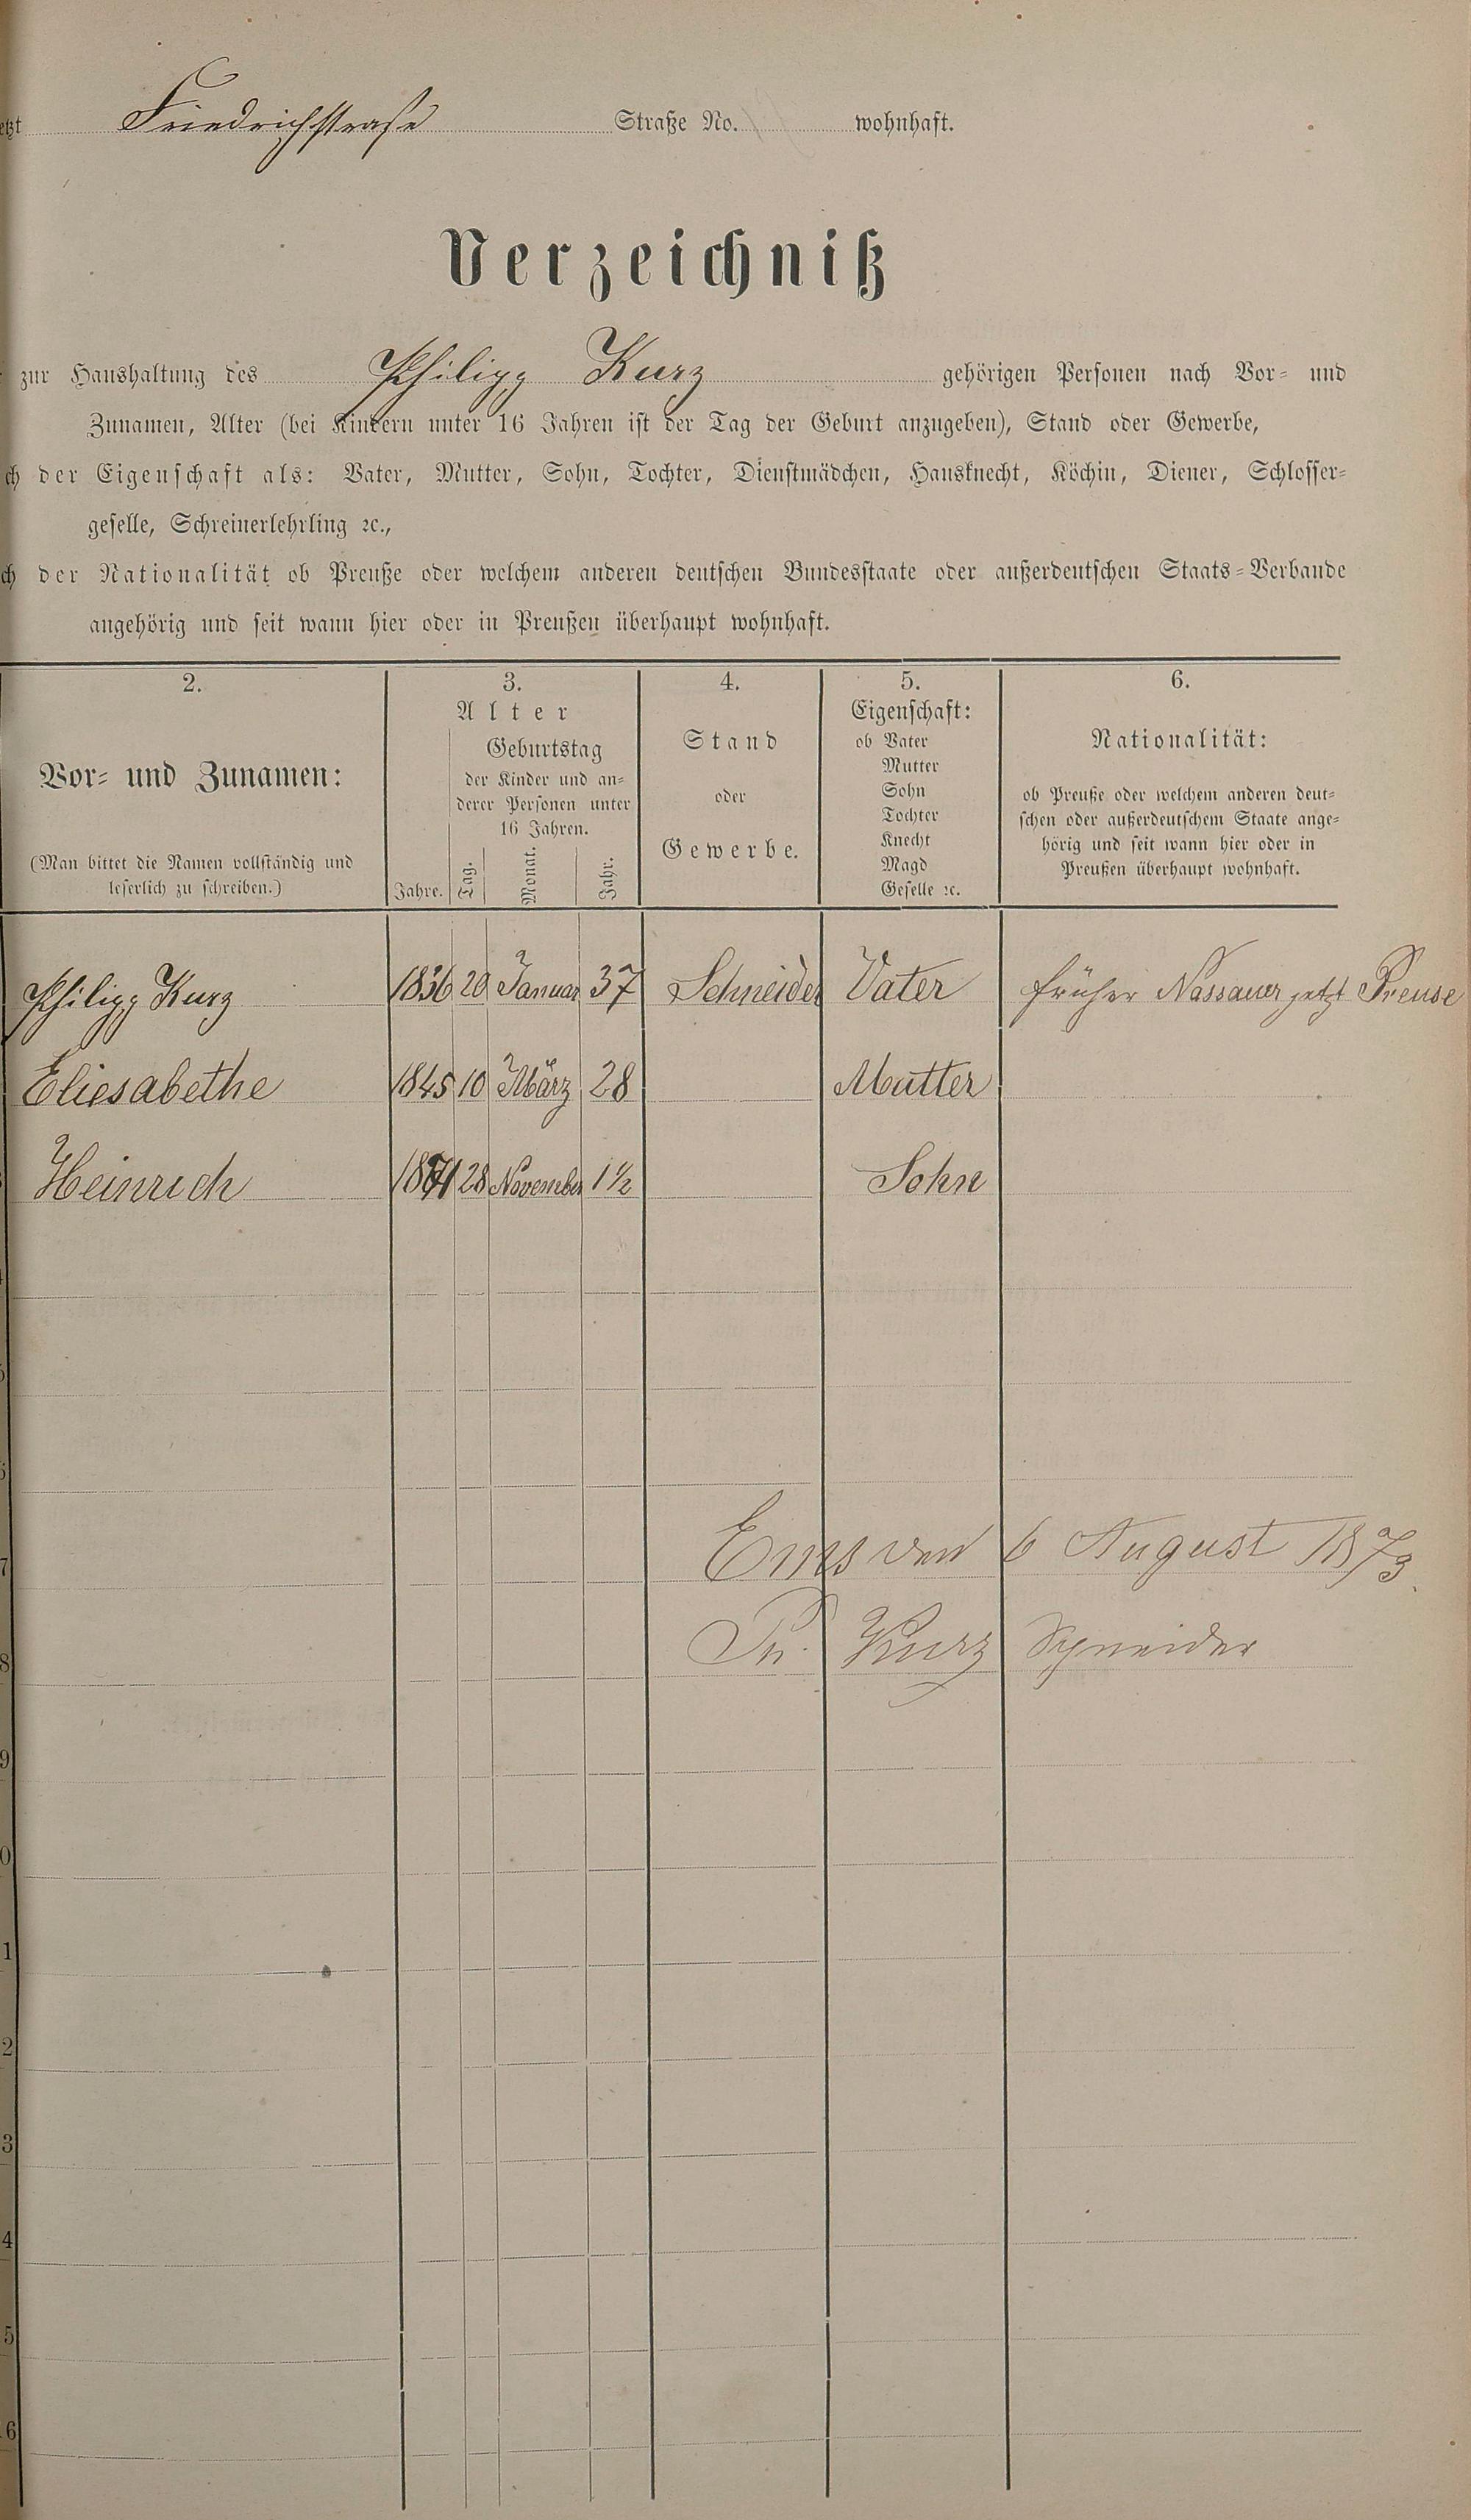 etzt Friedrichstraße Straße No. wohnhaft.
Verzeichniß
zur Haushaltung des Philipp Kurz gehörigen Personen nach Vor- und
Zunamen, Alter (bei Kindern unter 16 Jahren ist der Tag der Geburt anzugeben), Stand oder Gewerbe,
ch der Eigenschaft als: Vater, Mutter, Sohn, Tochter, Dienstmädchen, Hausknecht, Köchin, Diener, Schlosser-
geselle, Schreinerlehrling ꝛc.,
ch der Nationalität ob Preuße oder welchem anderen deutschen Bundesstaate oder außerdeutschen Staats-Verbande
angehörig und seit wann hier oder in Preußen überhaupt wohnhaft.
2.
Vor- und Zunamen:
(Man bittet die Namen vollständig und
leserlich zu schreiben.)
3.
Alter
Geburtstag
der Kinder und an-
derer Personen unter
16 Jahren.
Jahre. Tag. Monat. Jahr.
4.
Stand
oder
Gewerbe.
5.
Eigenschaft:
ob Vater
Mutter
Sohn
Tochter
Knecht
Magd
Geselle ꝛc.
6.
Nationalität:
ob Preuße oder welchem anderen deut-
schen oder außerdeutschem Staate ange-
hörig und seit wann hier oder in
Preußen überhaupt wohnhaft.
Philipp Kurz 1836 20 Januar 37 Schneider Vater früher Nassauer jetzt Preuse
Eliesabethe 1845 10 März 28 Mutter
Heinrich 1871 28 November 1½ Sohn
Ems den 6 August 1873
Ph. Kurz Schneider
7
8
9
0
1
2
3
4
5
6